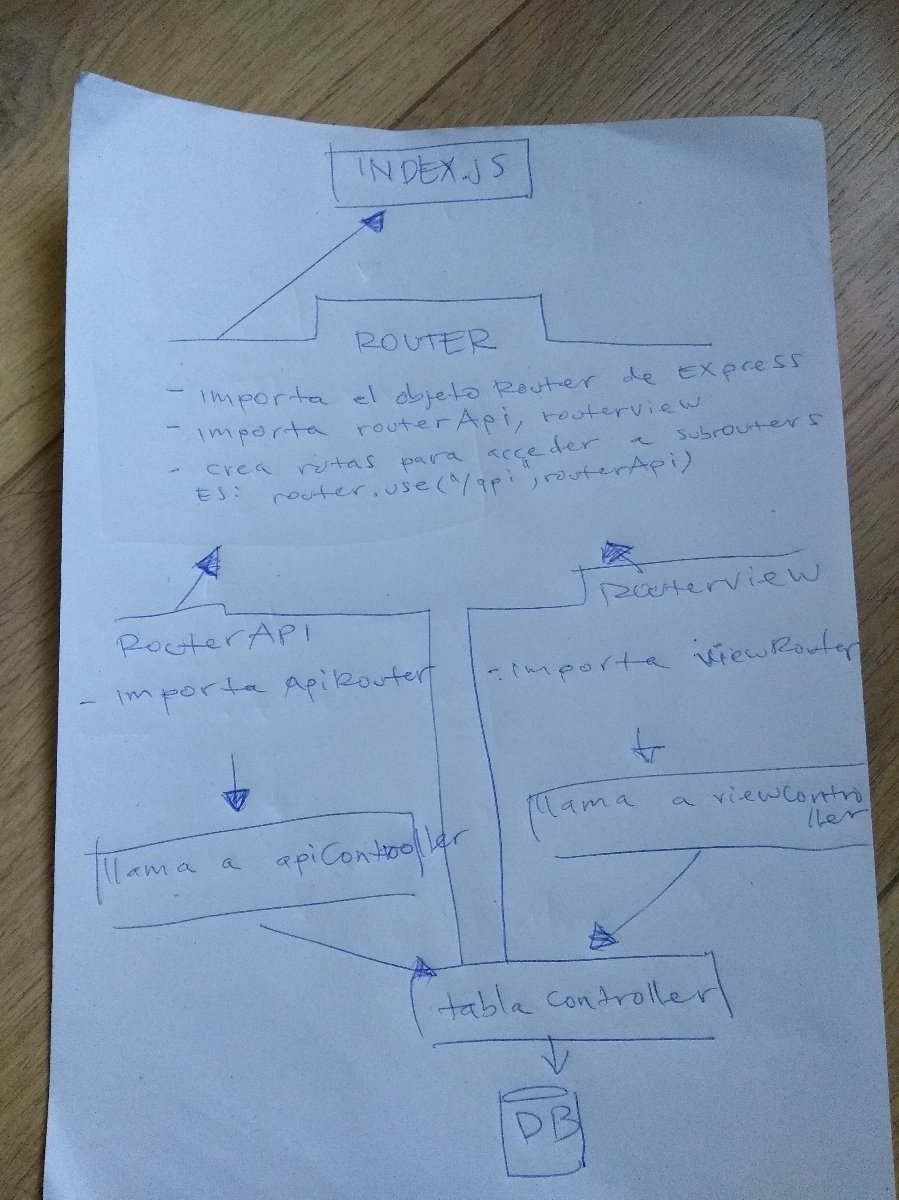 INDEX.JS
ROUTER
- Importa el objeto Router de Express
- Importa routerApi, routerview
- crea rutas para acceder a subrouters
ES: router.use("/api", routerApi)
RouterAPI
- Importa ApiRouter
Routerview
- Importa viewRouter
llama a apiController
llama a viewContro
ller
tabla controller
DB